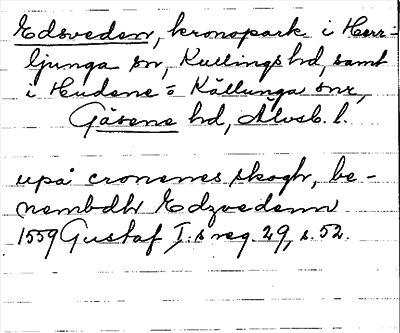 Edsveden, kronopark i Herr-
ljunga sn, Kullings hd, samt
i Hudene o Källunga snr,
Gäsene hd, Älvsb. l.
upå cronenes skogh, be-
nembdh Edzvedenn
1559 Gustaf I:s reg. 29, s. 52.